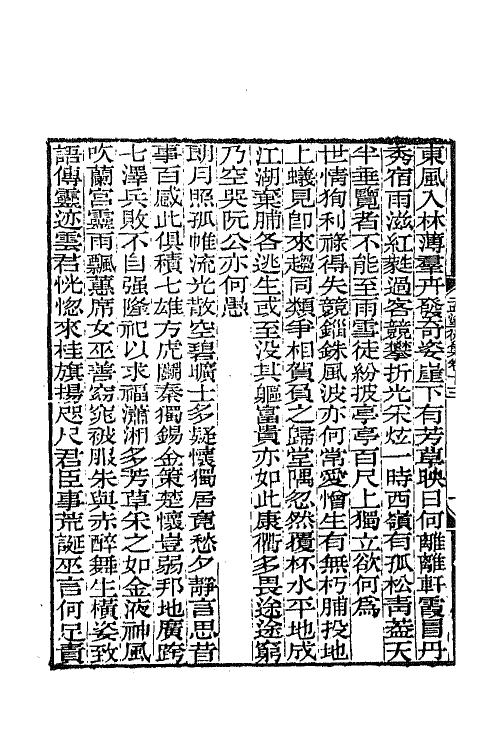 東風入林薄羣卉發奇姿崖下有芳草映日何離離軒霞冒丹
秀宿雨滋紅蕤過客競攀折光采炫一時西嶺有孤松青葢天
半垂覽者不能至雨雲徒紛披亭亭百尺上獨立欲何爲
世情狥利祿得失競錙銖風波亦何常愛憎生有無朽脯投地
上蟻見卽來趨同類爭相賀負之歸堂隅忽然覆杯水平地成
江湖棄脯各逃生或至没其軀富貴亦如此康衢多畏途途窮
乃空哭阮公亦何愚
朗月照孤帷流光散空碧曠士多疑懷獨居竟愁夕靜言思昔
事百感此俱積七雄方虎鬭秦獨錫金策楚懷豈弱邦地廣跨
七澤兵敗不自强隆祀以求福瀟湘多芳草采之如金液神風
吹蘭宮靈雨飄蕙席女巫善窈窕被服朱與赤醉舞生橫姿致
語傳靈迹雲君恍惚來桂旗揚咫尺君臣事荒誕巫言何足責